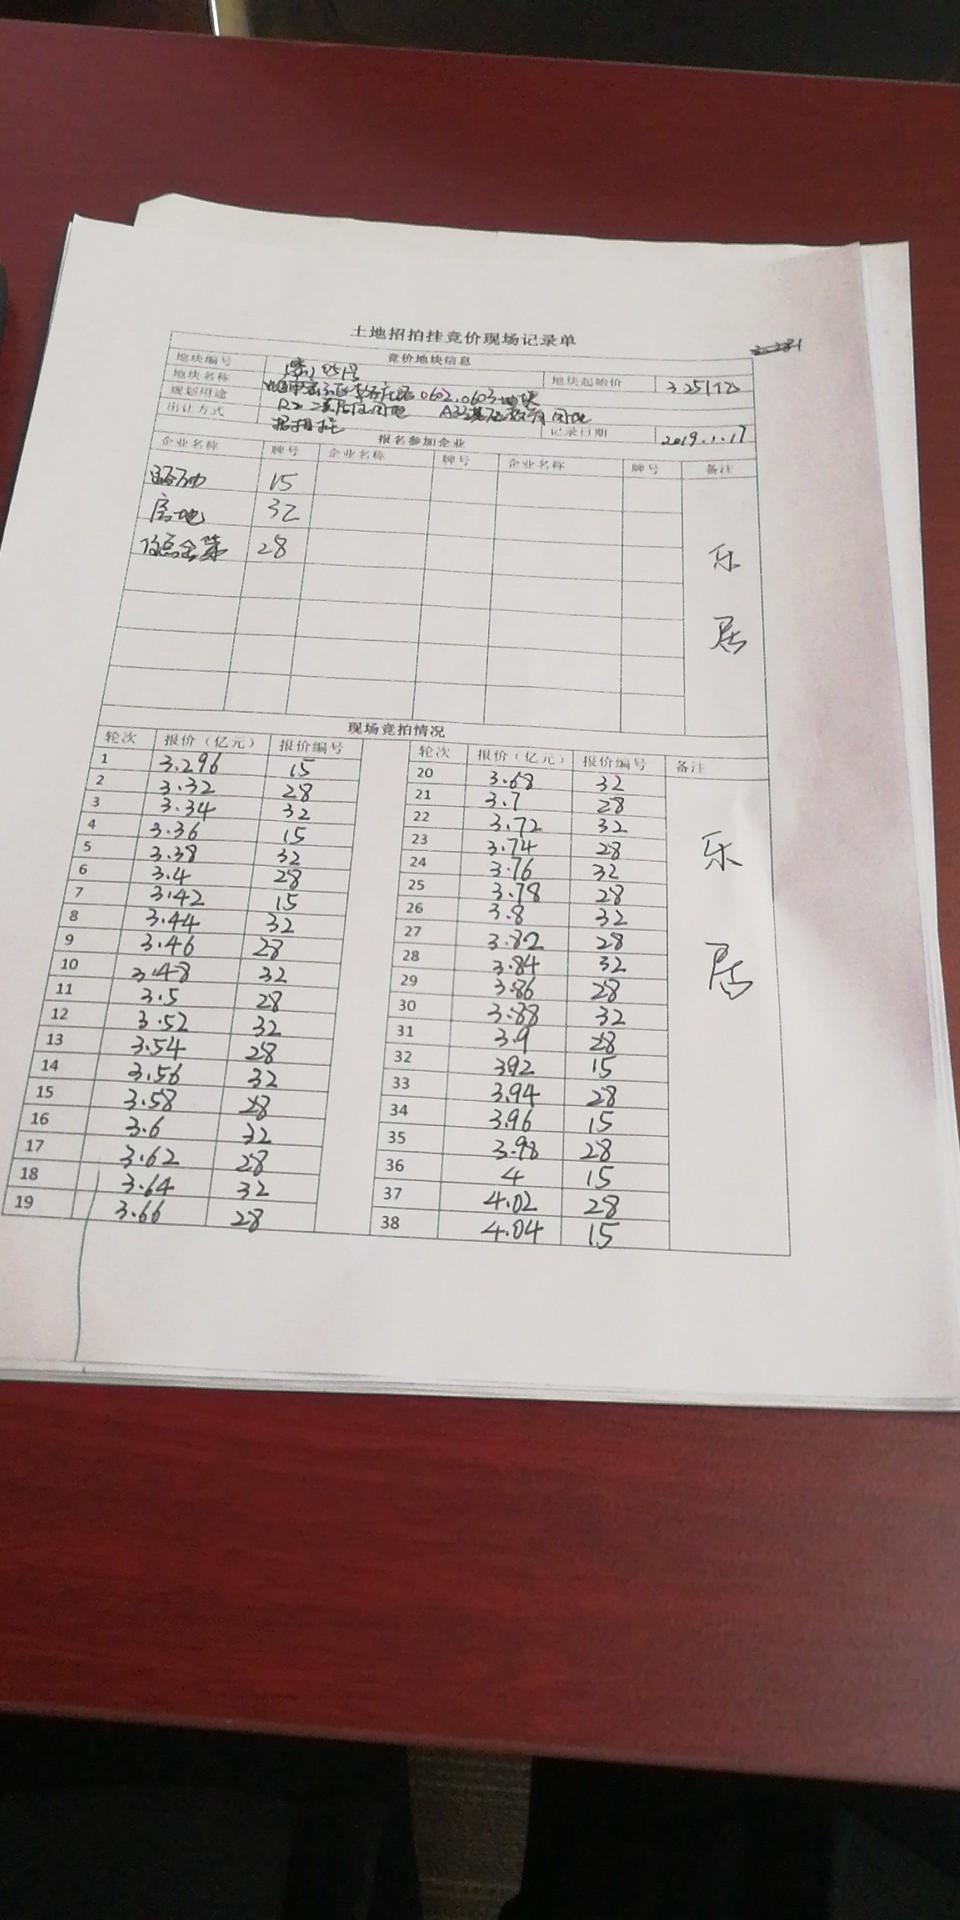 土地招拍挂竞价现场记录单
竞价地块信息
地块编号
地块名称 地块起始价 3.251亿
规划用途 0602、0603地块
出让方式 招拍挂 记录日期 2019.1.17
报名参加企业
企业名称 牌号 企业名称 牌号 企业名称 牌号 备注
15
房地 32
28
乐
居
现场竞拍情况
轮次 报价（亿元） 报价编号 轮次 报价（亿元） 报价编号 备注
1 3.296 15 20 3.68 32
2 3.32 28 21 3.7 28
3 3.34 32 22 3.72 32
4 3.36 15 23 3.74 28
5 3.38 32 24 3.76 32
6 3.4 28 25 3.78 28
7 3.42 15 26 3.8 32
8 3.44 32 27 3.82 28
9 3.46 28 28 3.84 32
10 3.48 32 29 3.86 28
11 3.5 28 30 3.88 32
12 3.52 32 31 3.9 28
13 3.54 28 32 3.92 15
14 3.56 32 33 3.94 28
15 3.58 28 34 3.96 15
16 3.6 32 35 3.98 28
17 3.62 28 36 4 15
18 3.64 32 37 4.02 28
19 3.66 28 38 4.04 15
乐
居